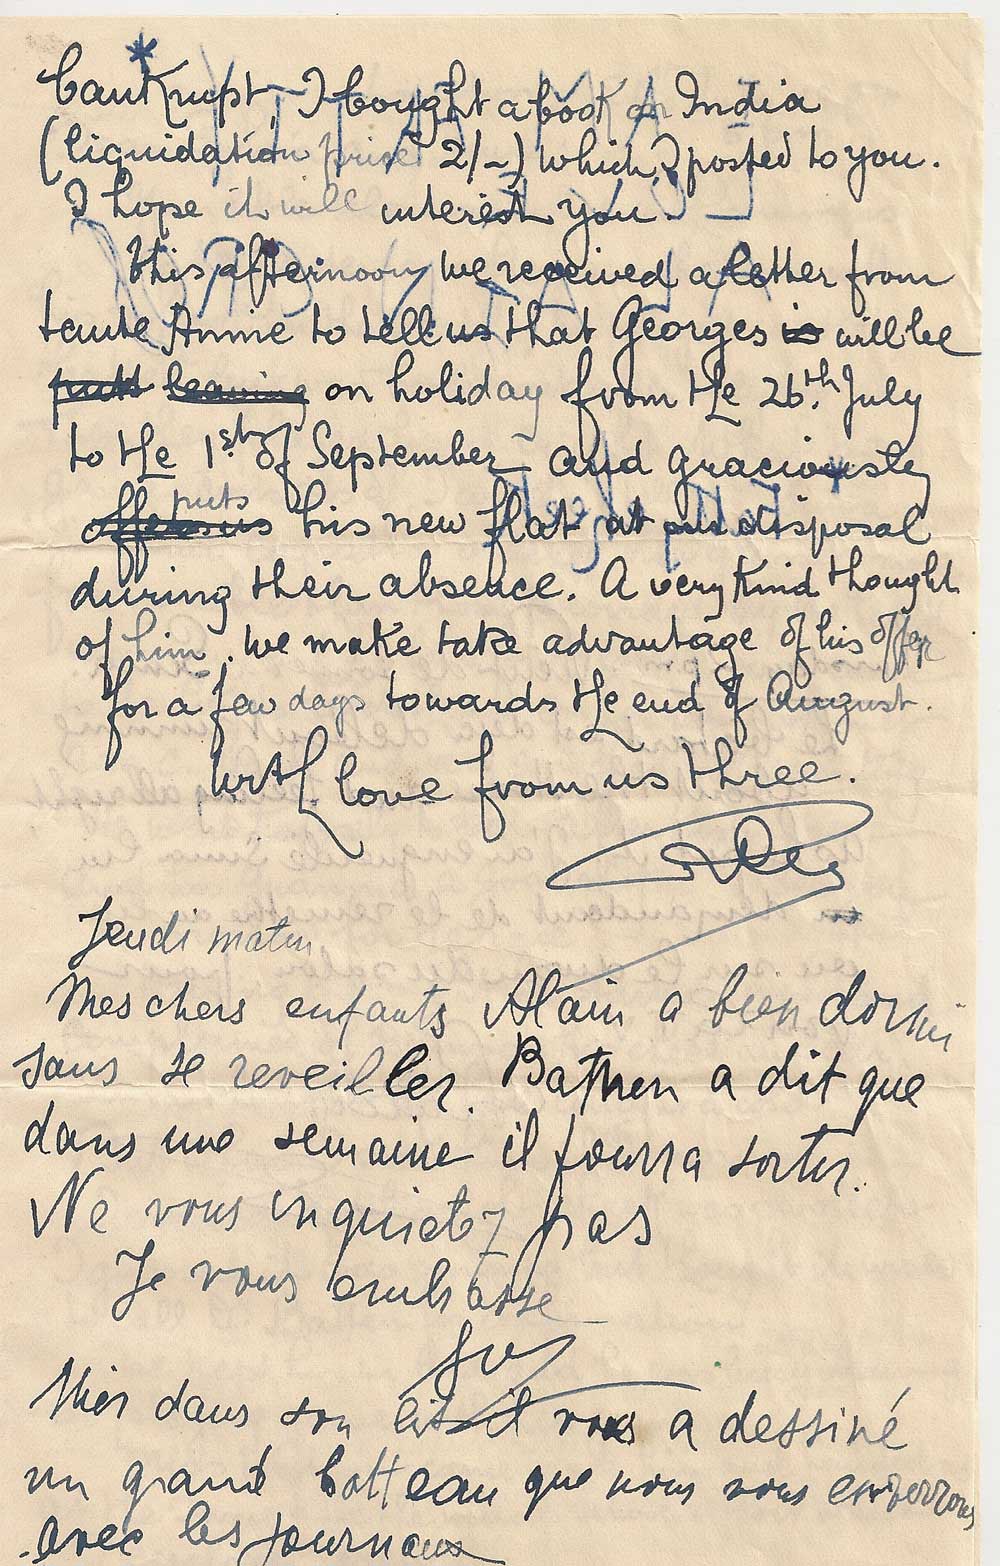 bankrupt, I bought a book on India
(liquidation prise 2/-) which I posted to you.
I hope it will interest you.
This afternoon we received a letter from
tante Annie to tell us that Georges is will be
putt leaving on holiday from the 26th July
to the 1st of September and graciously
offers us puts his new flat at our disposal
during their absence. A very kind thought
of him. We make take advantage of his offer
for a few days towards the end of August.
With love from us three.
Jeudi matin
Mes chers enfants Alain a bien dormi
sans se reveiller. Bathen a dit que
dans une semaine il pourra sortir.
Ne vous inquietez pas
Je vous embrasse
Hier dans son lit il vous a dessiné
un grand batteau que nous vous enverrons
avec les journaux